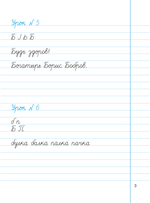 Урок № 5
Б
Будь здоров!
Богатырь Борис Бобров.
Урок № 6
б п
Б П
булка балка палка пачка